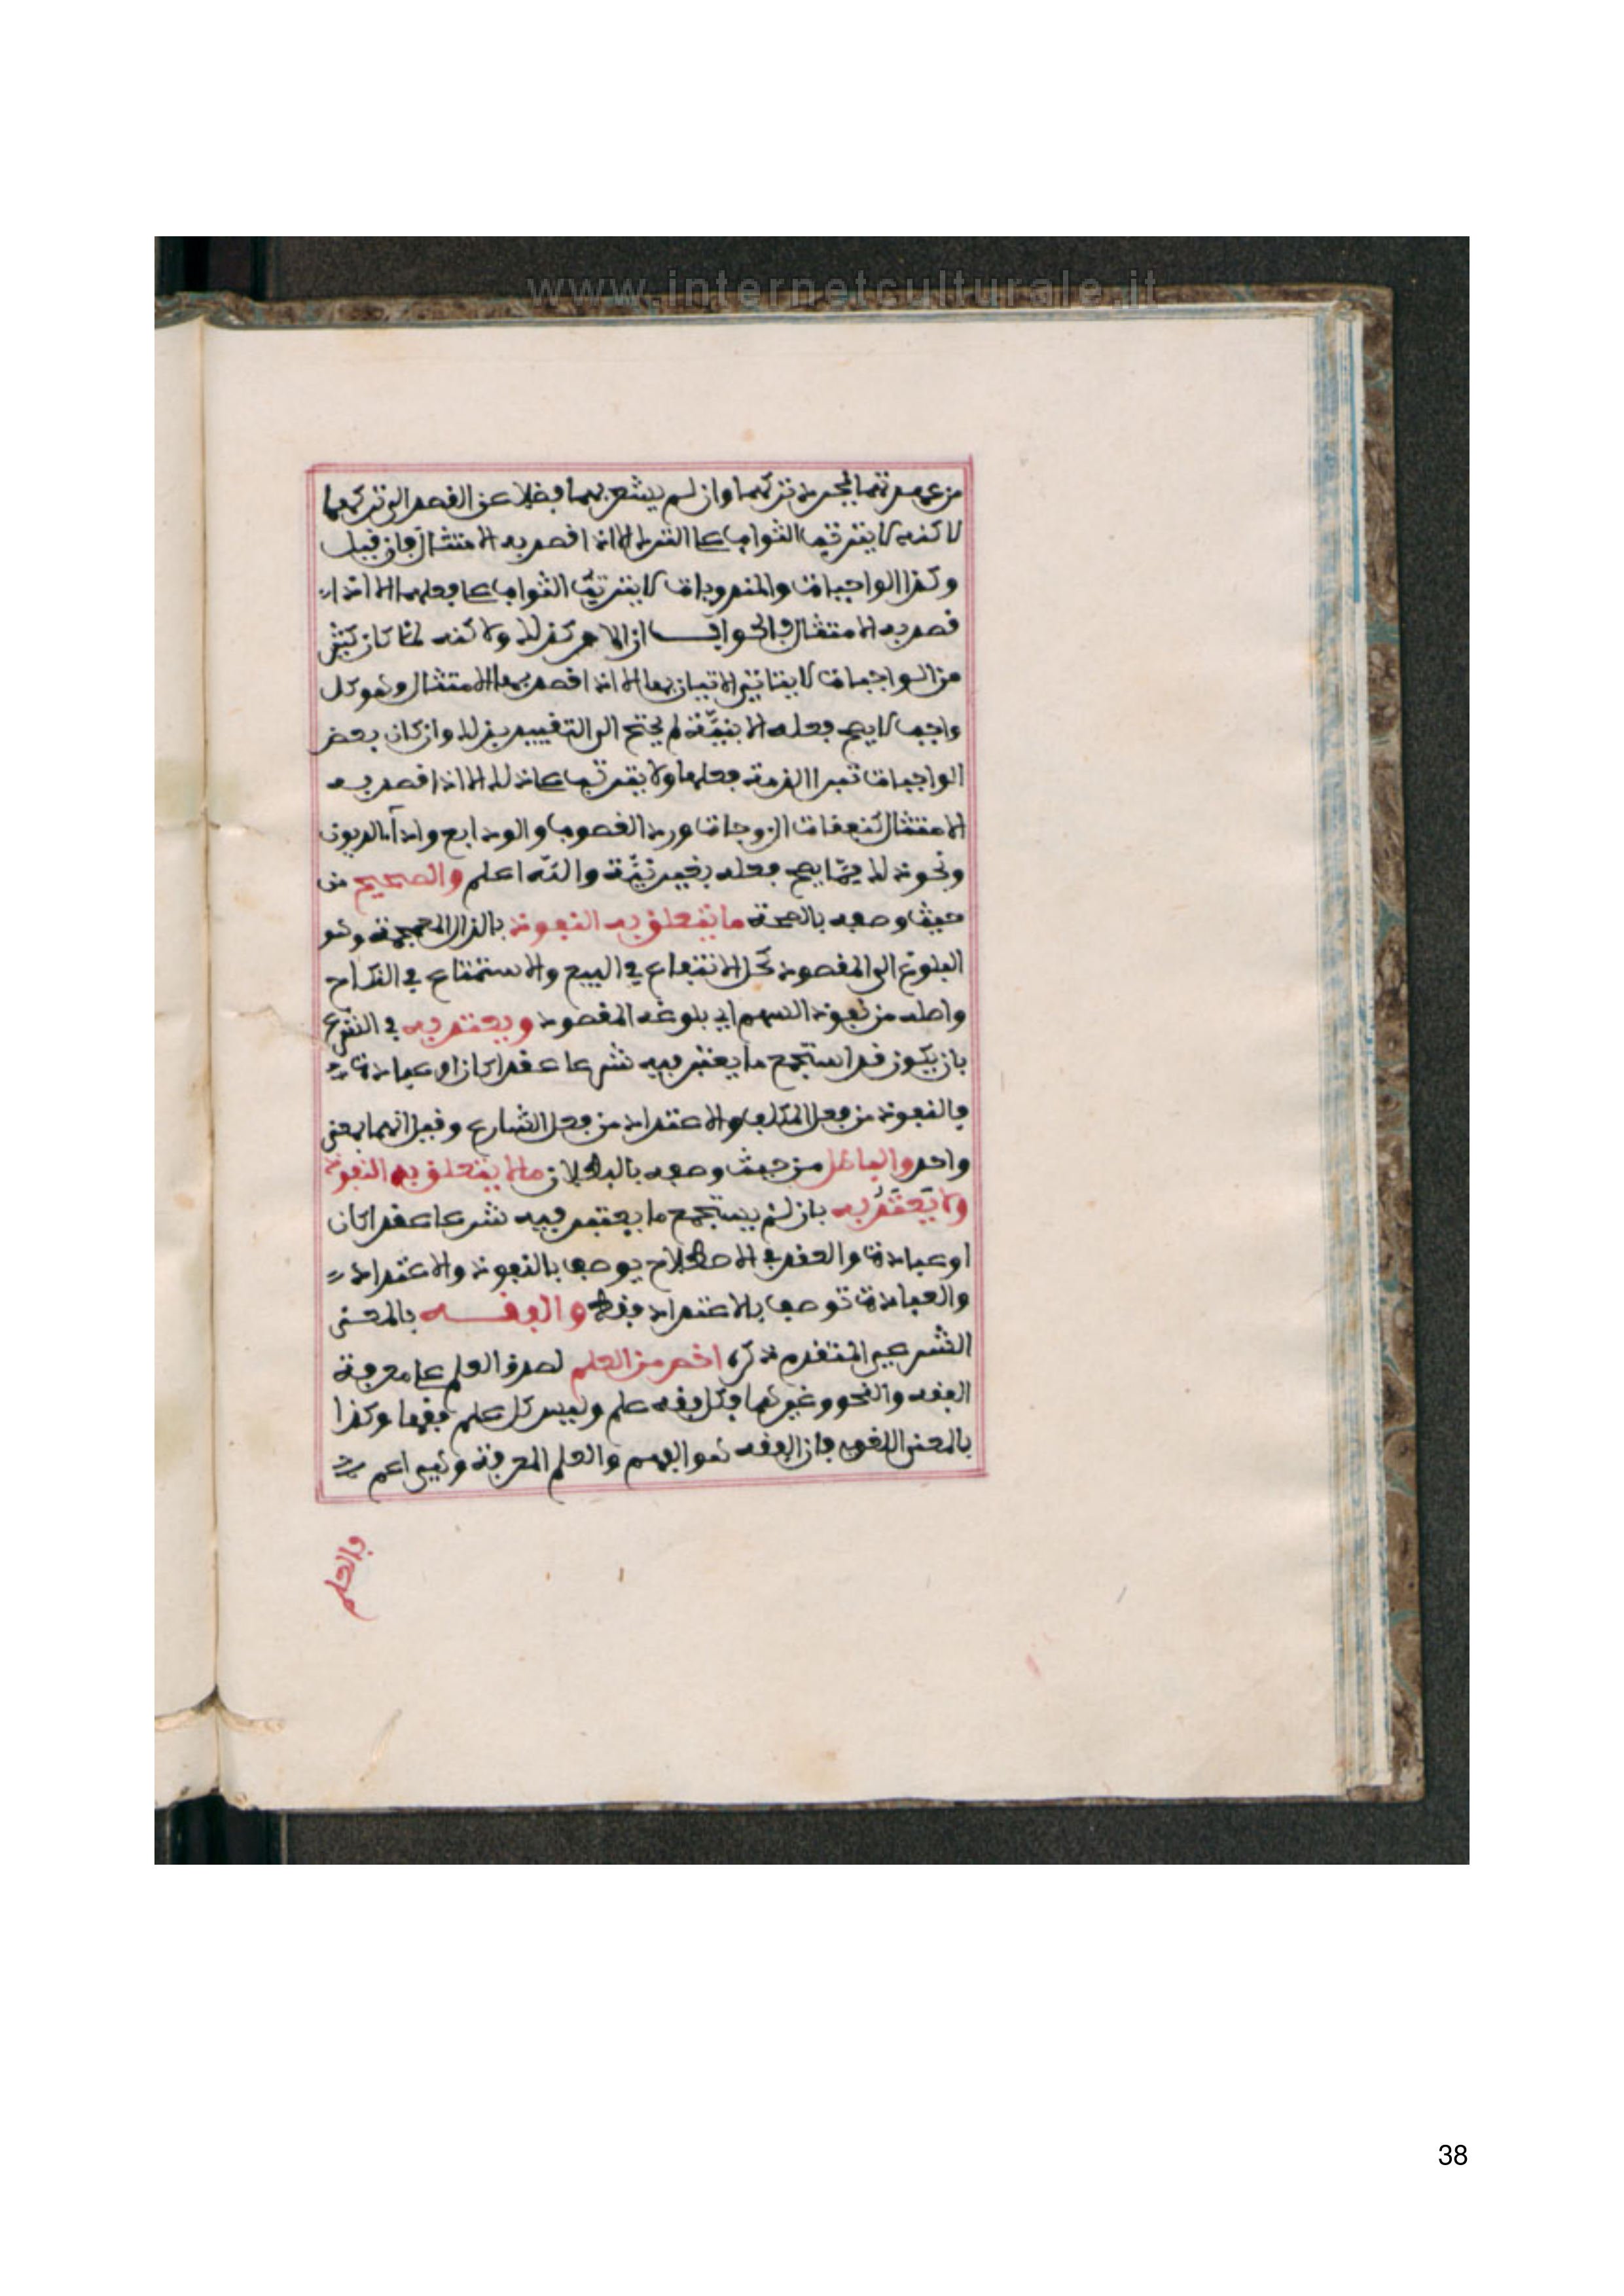 www.internetculturale.it
من عهدتهما بمجرد تركهما وان لم يشعر بهما فضلا عن القصد الى تركهما
لاكنه لا يترتب الثواب على الترك الا اذا قصد به الامتثال فان قيل
وكذا الواجبات والمندوبات لا يترتب الثواب على فعلهما الا اذا
قصد به الامتثال فالجواب ان الامر كذلك ولاكنه لما كان كثير
من الواجبات لا يتاتى الاتيان بها الا اذا قصد بها الامتثال وهو كل
واجب لا يصح فعله الا بنيّة لم يحتج الى التقييد بذلك وان كان بعض
الواجبات تبرا الذمة بفعلها ولا يترتب على ذلك الا اذا قصد به
الامتثال كنفقات الزوجات ورد الغصوب والودايع واداء الديون
ونحو ذلك ممّا يصح فعله بغير نيّة والله اعلم والصحيح من
حيث وصفه بالصحة ما يتعلق به النفوذ بالذال المعجمة وهو
البلوغ الى المقصود كحل الانتفاع في البيع والاستمتاع في النكاح
واصله من نفوذ السهم اي بلوغه المقصود ويعتد به في الشرع
بان يكون قد استجمع ما يعتبر فيه شرعا عقدا كان او عبادة
فالنفوذ من فعل المكلف والاعتداد من فعل الشارع وقيل انهما بمعنى
واحد والباطل من حيث وصفه بالبطلان ما لا يتعلق به النفوذ
ولا يُعتَدُّ به بان لم يستجمع ما يعتبر فيه شرعا عقدا كان
او عبادة والعقد في الاصطلاح يوصف بالنفوذ والاعتداد
والعبادة توصف بالاعتداد فقط والفقه بالمعنى
الشرعي المتقدم ذكره اخص من العلم لصدق العلم على معرفة
الفقه والنحو وغيرهما فكل فقه علم وليس كل علم فقها وكذا
بالمعنى اللغوي فان الفقه هو الفهم والعلم المعرفة وهي اعم
والعلم
38